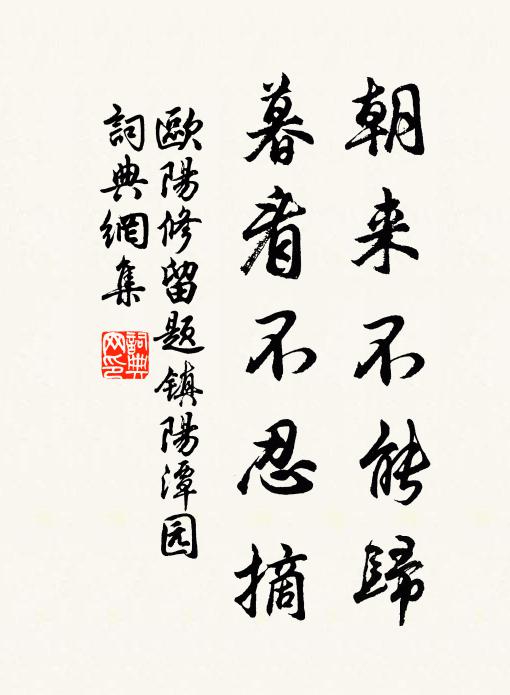 朝来不能歸
暮看不忍摘
歐陽修留题镇陽潭园
詞典網集
詞典網印